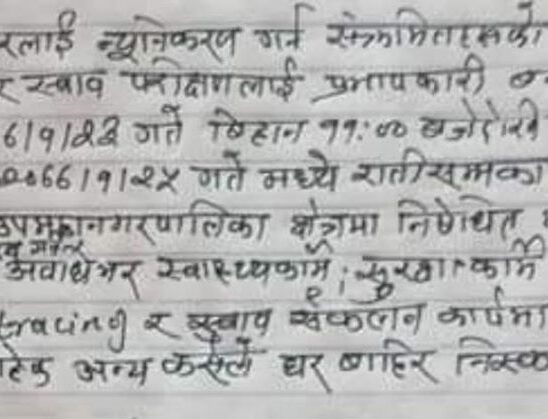 रलाई न्यूनिकरण गर्न संक्रमितहरुको
र स्वाव परीक्षणलाई प्रभावकारी
6/9/23 गते बिहान ११:०० बजेदेखि
2066/9/25 गते मध्ये रातीसम्मका
उपमहानगरपालिका क्षेत्रमा निषेधित
अवधिभर स्वास्थ्यकर्मी, सुरक्षाकर्मी
tracing र स्वाव संकलन कार्यमा
हेक अन्य कसैले घर बाहिर निस्क